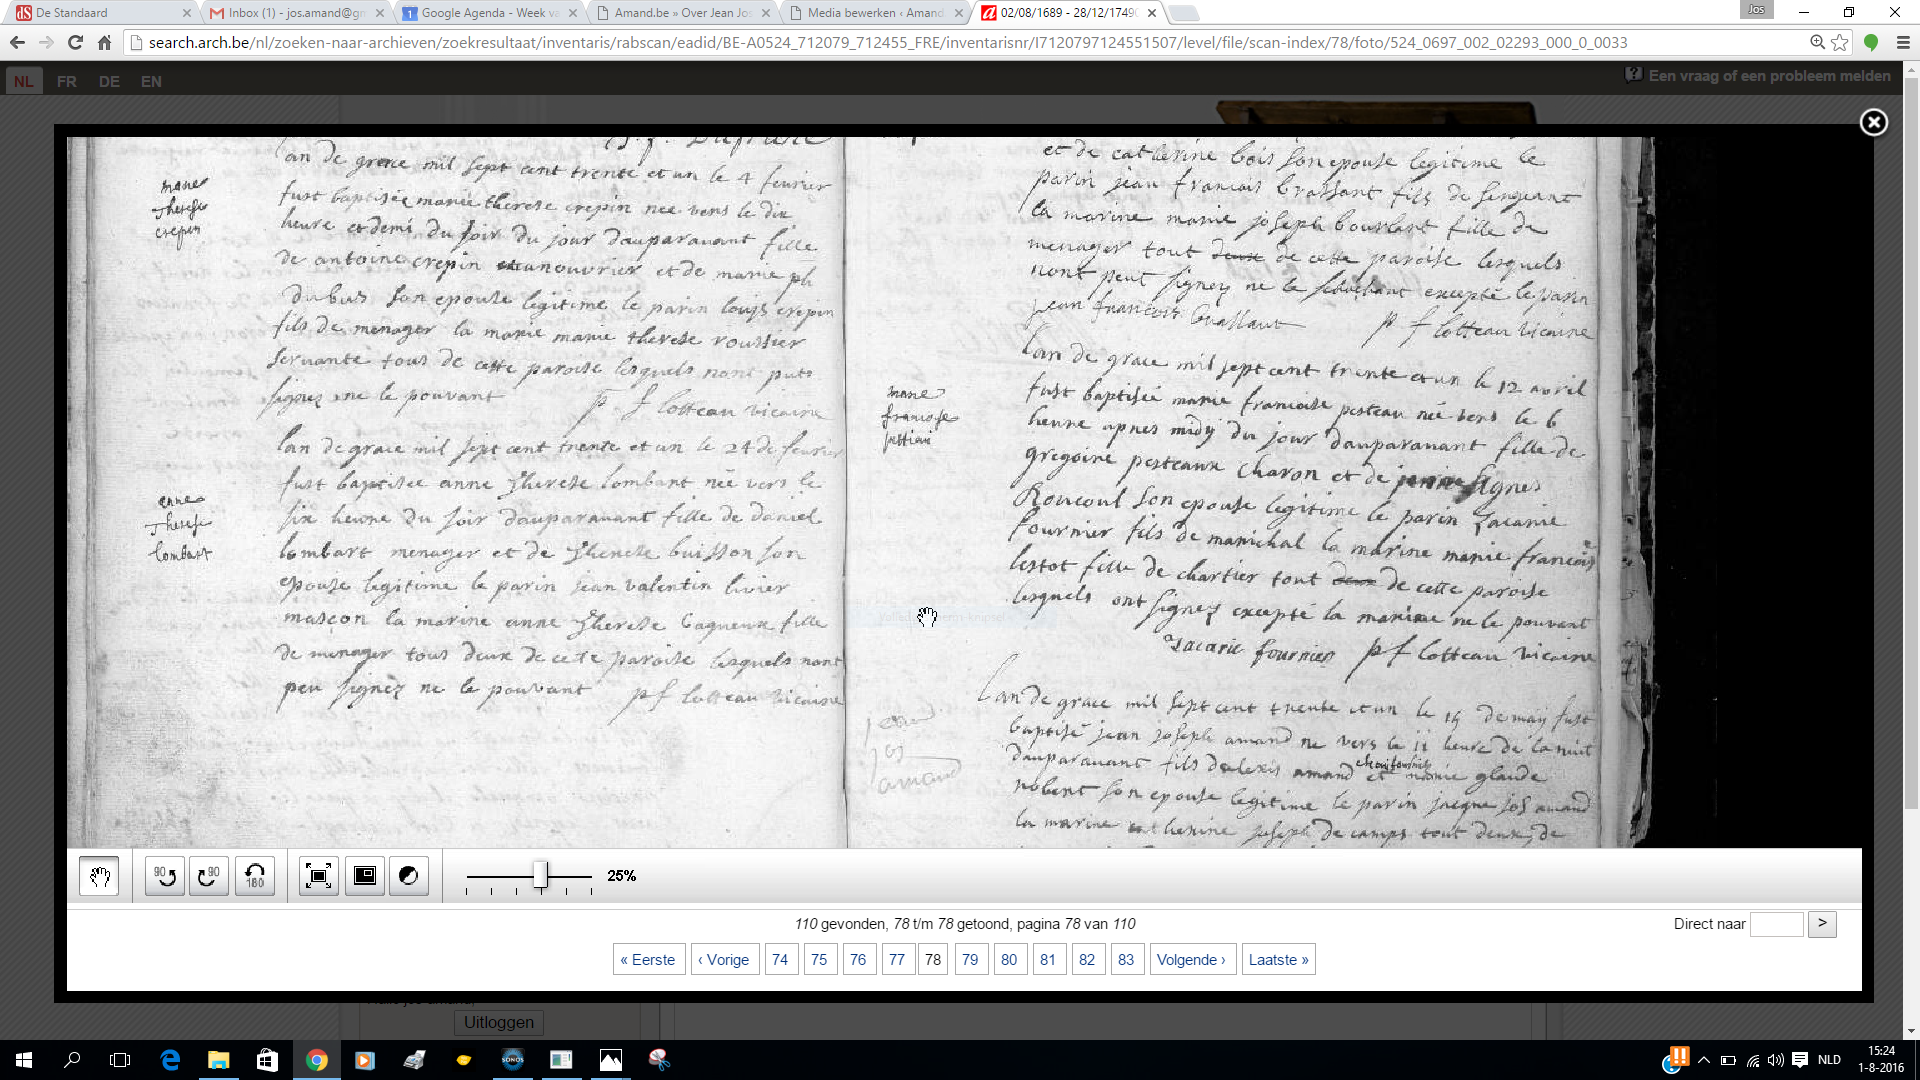 De Standaard
Inbox (1) - jos.amand@gm
Google Agenda - Week va
Amand.be » Over Jean Jos
Media bewerken ‹ Amand
02/08/1689 - 28/12/1749
Jos
search.arch.be/nl/zoeken-naar-archieven/zoekresultaat/inventaris/rabscan/eadid/BE-A0524_712079_712455_FRE/inventarisnr/I7120797124551507/level/file/scan-index/78/foto/524_0697_002_02293_000_0_0033
NL FR DE EN
Een vraag of een probleem melden
Lan de grace mil sept cent trente et un le 4 fevrier
fust baptisée marie therese crepin nee vers le dix
heure et demi du soir du jour dauparavant fille
de antoine crepin manouvrier et de marie ph
Dubus son epouse legitime le parin louis crepin
fils de menager la marie marie therese roussier
servante tous de cette paroise lesquels nont puts
signez ne le pouvant p f lotteau vicaire
marie
Therese
crepin
lan de grace mil sept cent trente et un le 24 de fevrier
fust baptisee anne Therese lombart née vers le
six heure du soir dauparavant fille de daniel
lombart menager et de Therese buisson son
epouse legitime le parin jean valentin livier
mascon la marine anne Therese baqueux fille
de menager tous deux de cette paroise lesquels nont
peu signez ne le pouvant pf lotteau vicaire
enne
Therese
lombart
et de catherine bois son epouse legitime le
parin jean francois brassart fils de sergeant
la marine marie joseph boursart fille de
menager tout deux de cette paroise lesquels
nont peut signez ne le scachant excepté le parin
jean francois brassart p f lotteau vicaire
Lan de grace mil sept cent trente et un le 12 avril
fust baptisée marie francoise pesteau née vers le 6
heure apres midy du jour dauparavant fille de
gregoire pesteaux charon et de Agnes
Roucoul son epouse legitime le parin Zacarie
fournier fils de marichal la marine marie francois
lestot fille de chartier tout deux de cette paroise
lesquels ont signez excepté la marine ne le pouvant
Zacarie fournier pf lotteau vicaire
marie
francoise
Lan de grace mil sept cent trente et un le 14 de may fust
baptisé jean joseph amand ne vers le 11 heure de la nuit
dauparavant fils dalexis amand et marie glaude
robert son epouse legitime le parin jacque jos amand
la marine catherine joseph de camps tout deux de
jean
jos
amand
90
90
180
25%
110 gevonden, 78 t/m 78 getoond, pagina 78 van 110
Direct naar >
« Eerste ‹ Vorige 74 75 76 77 78 79 80 81 82 83 Volgende › Laatste »
Uitloggen
SONOS
NLD
15:24
1-8-2016